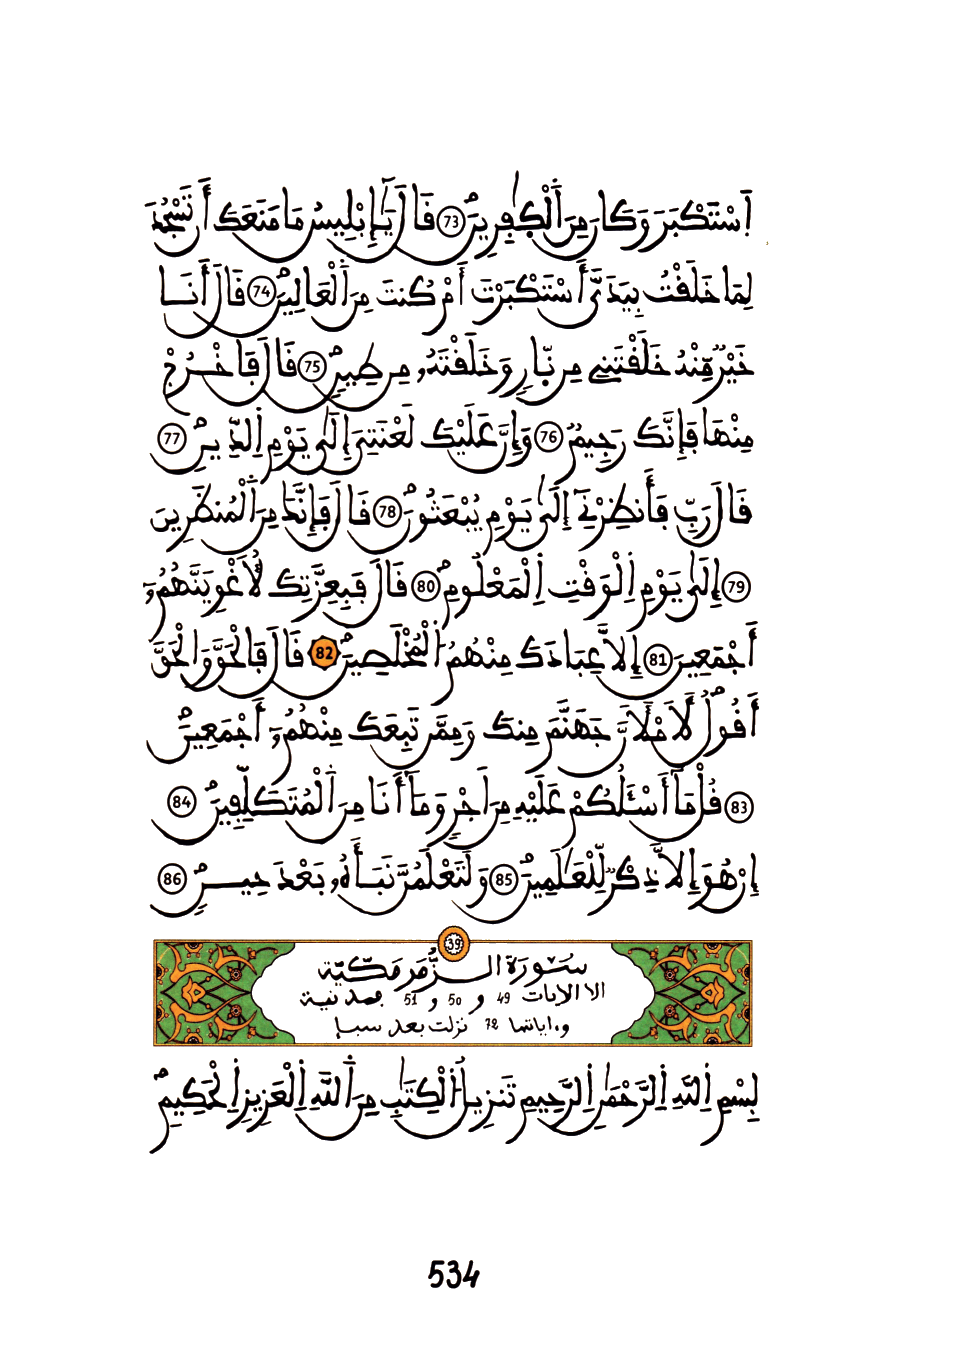 اَسْتَكْبَرَ وَكَانَ مِنَ اَ۬لْكٰفِرِينَۖ 73 قَالَ يَٰٓإِبْلِيسُ مَا مَنَعَكَ أَن تَسْجُدَ
لِمَا خَلَقْتُ بِيَدَيَّۖ أَسْتَكْبَرْتَ أَمْ كُنتَ مِنَ اَ۬لْعَالِينَۖ 74 قَالَ أَنَا
خَيْرٞ مِّنْهُ خَلَقْتَنِے مِن نّ۪ارٖ وَخَلَقْتَهُۥ مِن طِينٖۖ 75 قَالَ فَاخْرُجْ
مِنْهَا فَإِنَّكَ رَجِيمٞۖ 76 وَإِنَّ عَلَيْكَ لَعْنَتِيَ إِلَىٰ يَوْمِ اِ۬لدِّينِۖ 77
قَالَ رَبِّ فَأَنظِرْنِےٓ إِلَىٰ يَوْمِ يُبْعَثُونَۖ 78 قَالَ فَإِنَّكَ مِنَ اَ۬لْمُنظَرِينَ
79 إِلَىٰ يَوْمِ اِ۬لْوَقْتِ اِ۬لْمَعْلُومِۖ 80 قَالَ فَبِعِزَّتِكَ لَأُغْوِيَنَّهُمُۥٓ
أَجْمَعِينَ 81 إِلَّا عِبَادَكَ مِنْهُمُ اُ۬لْمُخْلَصِينَۖ 82 قَالَ فَالْحَقَّ وَالْحَقَّ
أَقُولُۖ لَأَمْلَأَنَّ جَهَنَّمَ مِنكَ وَمِمَّن تَبِعَكَ مِنْهُمُۥٓ أَجْمَعِينَۖ
83 قُلْ مَآ أَسْـَٔلُكُمْ عَلَيْهِ مِنَ اَجْرٖ وَمَآ أَنَا مِنَ اَ۬لْمُتَكَلِّفِينَۖ 84
إِنْ هُوَ إِلَّا ذِكْرٞ لِّلْعَٰلَمِينَۖ 85 وَلَتَعْلَمُنَّ نَبَأَهُۥ بَعْدَ حِينٖۖ 86
39
سُورَةُ الزُّمَرِ مَكِّيَّة
الا الايات 49 و 50 و 51 فمدنية
وءاياتها 72 نزلت بعد سبإ
بِسْمِ اِ۬للَّهِ اِ۬لرَّحْمَٰنِ اِ۬لرَّحِيمِ تَنزِيلُ اُ۬لْكِتَٰبِ مِنَ اَ۬للَّهِ اِ۬لْعَزِيزِ اِ۬لْحَكِيمِۖ
534